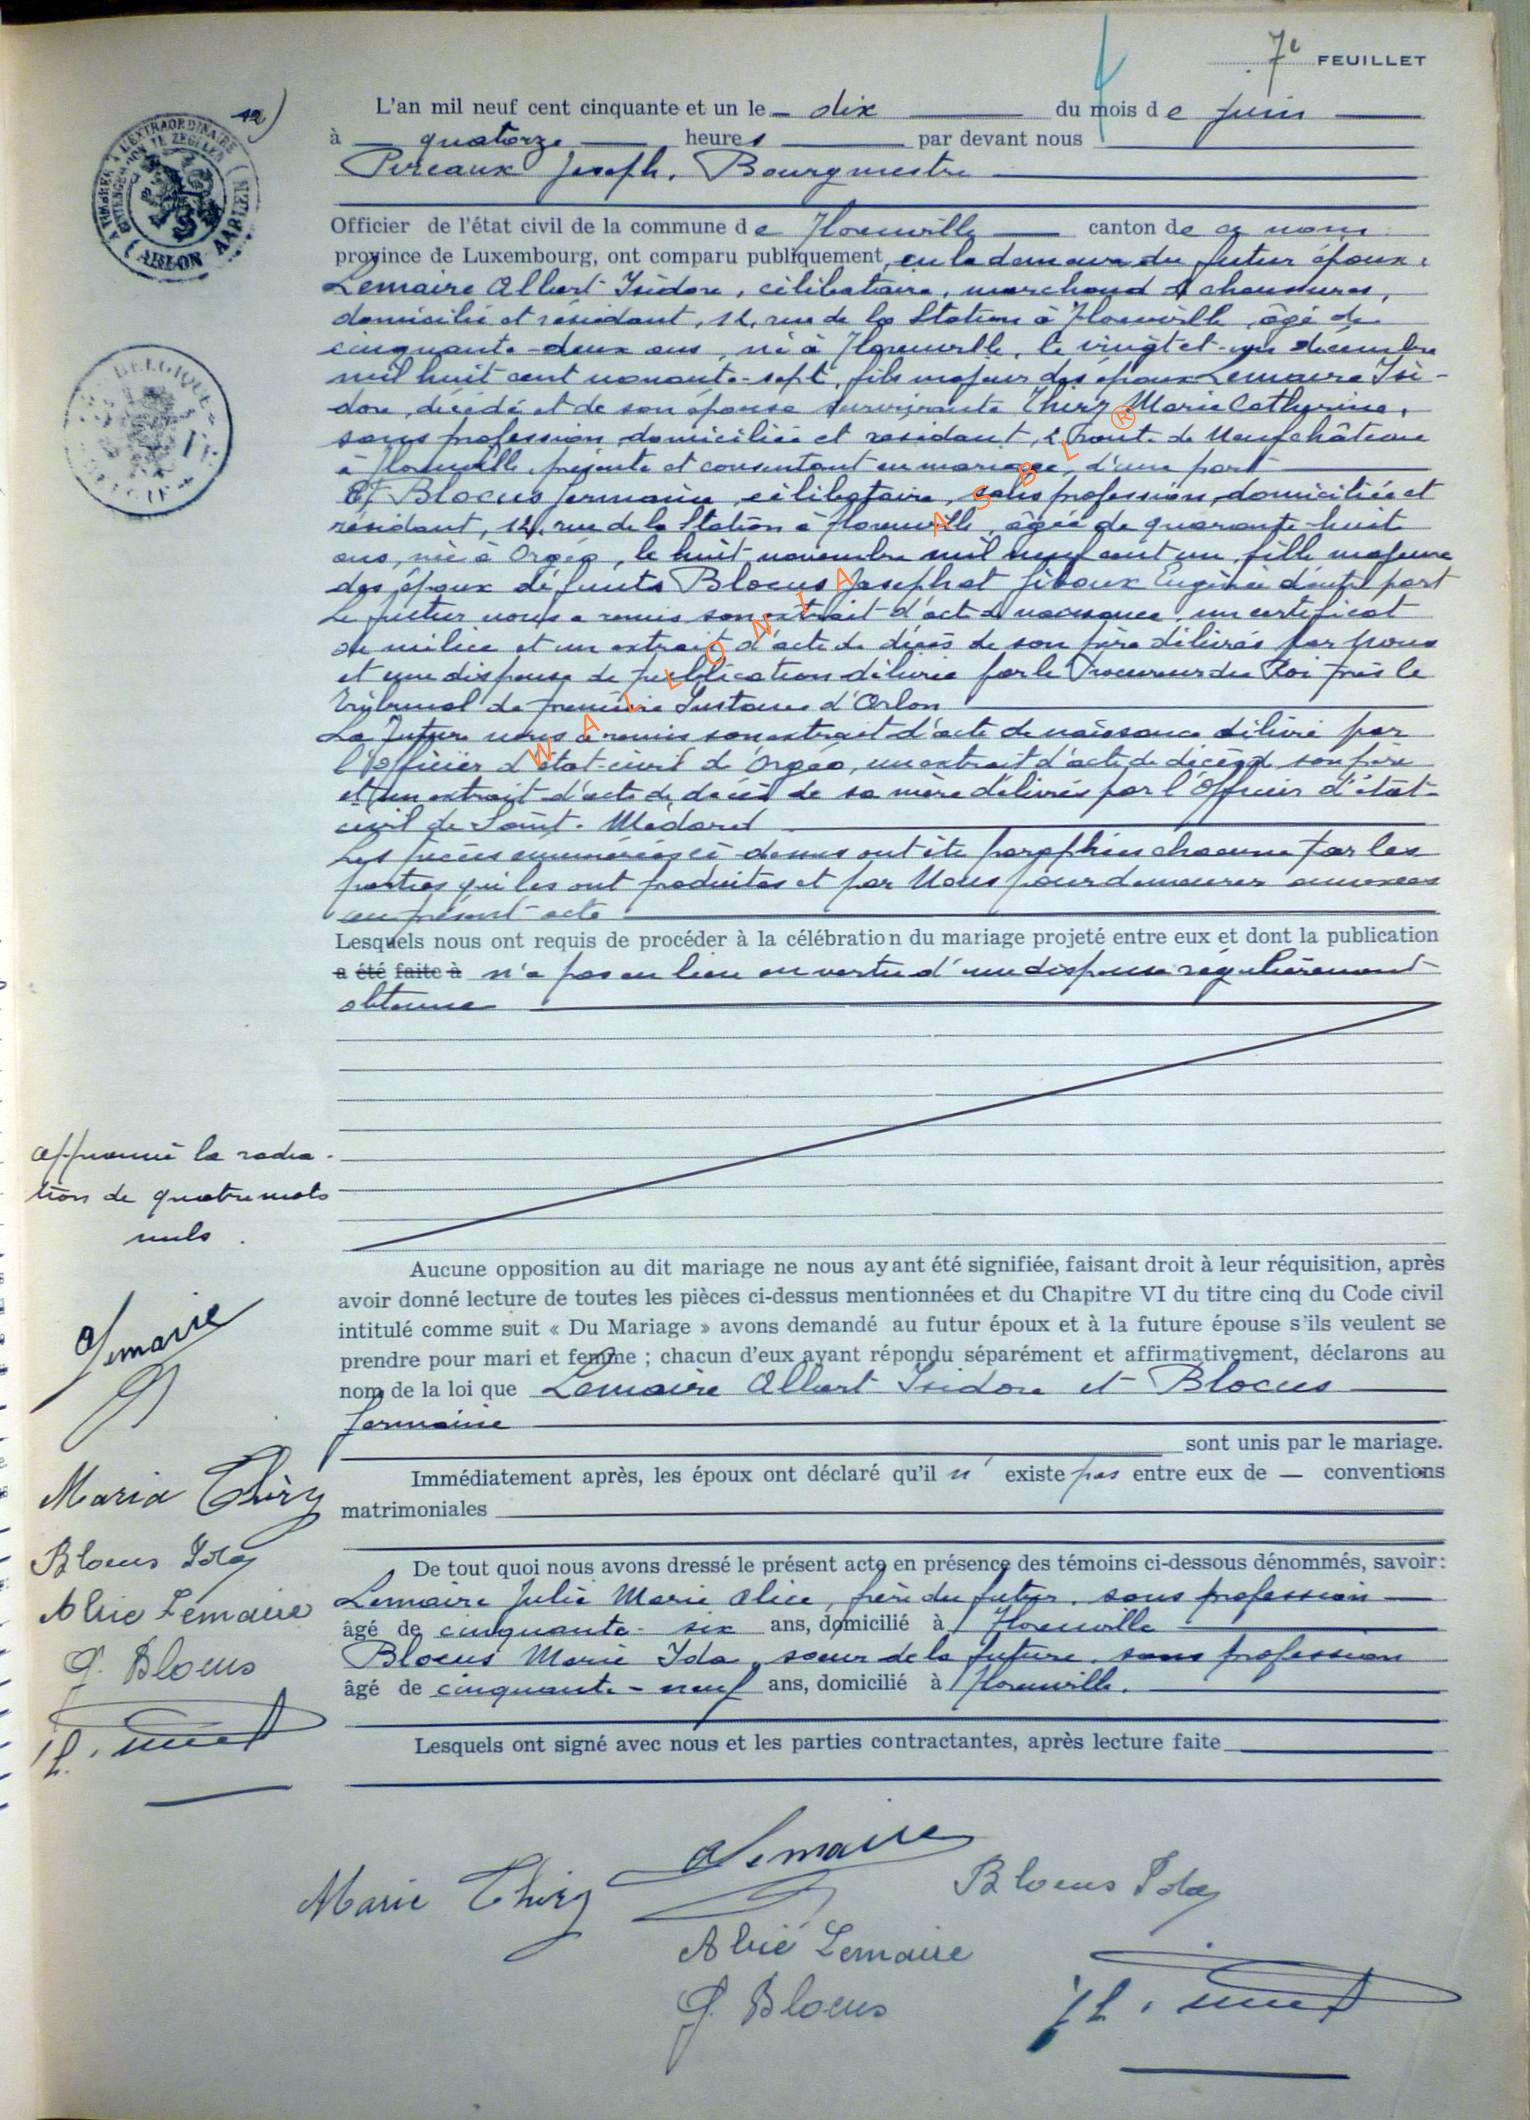 7e FEUILLET
12)
L'an mil neuf cent cinquante et un le dix du mois de juin
à quatorze heures par devant nous
Pireaux Joseph, Bourgmestre
Officier de l'état civil de la commune de Florenville canton de ce nom
province de Luxembourg, ont comparu publiquement, en la demeure du futur époux,
Lemaire Albert Isidore, célibataire, marchand de chaussures,
domicilié et résidant, 12, rue de la Station à Florenville, âgé de
cinquante-deux ans, né à Florenville, le vingt et un décembre
mil huit cent nonante-sept, fils majeur des époux Lemaire Isi-
dore, décédé et de son épouse survivante Thiry Marie Catherine,
sans profession domiciliée et résidant, 2, route de Neufchâteau
à Florenville, présente et consentant au mariage, d'une part
Et Blocus Germaine, célibataire, sans profession, domiciliée et
résidant, 12, rue de la Station à Florenville, âgée de quarante-huit
ans, née à Orgéo, le huit novembre mil neuf cent un, fille majeure
des époux défunts Blocus Joseph et Jiroux Eugénie d'autre part
Le futur nous a remis son extrait d'acte de naissance, un certificat
de milice et un extrait d'acte de décès de son père délivrés par nous
et une dispense de publication délivrée par le Procureur du Roi près le
Tribunal de première Instance d'Arlon
La future nous a remis son extrait d'acte de naissance délivré par
l'Officier d'état-civil d'Orgéo, un extrait d'acte de décès de son père
et un extrait d'acte de décès de sa mère délivrés par l'Officier d'état-
civil de Saint-Médard
Les pièces énumérées ci-dessus ont été paraphées chacune par les
parties qui les ont produites et par Nous pour demeurer annexées
au présent acte
Lesquels nous ont requis de procéder à la célébration du mariage projeté entre eux et dont la publication
a été faite à n'a pas eu lieu en vertu d'une dispense régulièrement
obtenue
Approuvé la radia-
tion de quatre mots
nuls.
Aucune opposition au dit mariage ne nous ayant été signifiée, faisant droit à leur réquisition, après
avoir donné lecture de toutes les pièces ci-dessus mentionnées et du Chapitre VI du titre cinq du Code civil
intitulé comme suit « Du Mariage » avons demandé au futur époux et à la future épouse s'ils veulent se
prendre pour mari et femme ; chacun d'eux ayant répondu séparément et affirmativement, déclarons au
nom de la loi que Lemaire Albert Isidore et Blocus
Germaine
sont unis par le mariage.
Immédiatement après, les époux ont déclaré qu'il n' existe pas entre eux de — conventions
matrimoniales
De tout quoi nous avons dressé le présent acte en présence des témoins ci-dessous dénommés, savoir:
Lemaire Julie Marie Alice, frère du futur, sans profession
âgé de cinquante-six ans, domicilié à Florenville
Blocus Marie Ida, soeur de la future, sans profession
âgé de cinquante-neuf ans, domicilié à Florenville.
Lesquels ont signé avec nous et les parties contractantes, après lecture faite
A Lemaire
Maria Thiry
Blocus Ida
Alice Lemaire
G. Blocus
A Lemaire
Marie Thiry
Blocus Ida
Alice Lemaire
G. Blocus
WALLONIA ASBL ®
ARLON AARLEN